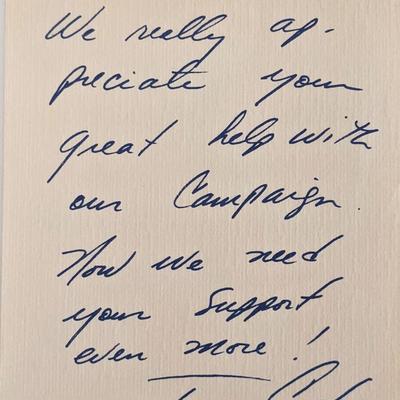 We really ap-
preciate your
great help with
our Campaign.
Now we need
your support
even more!